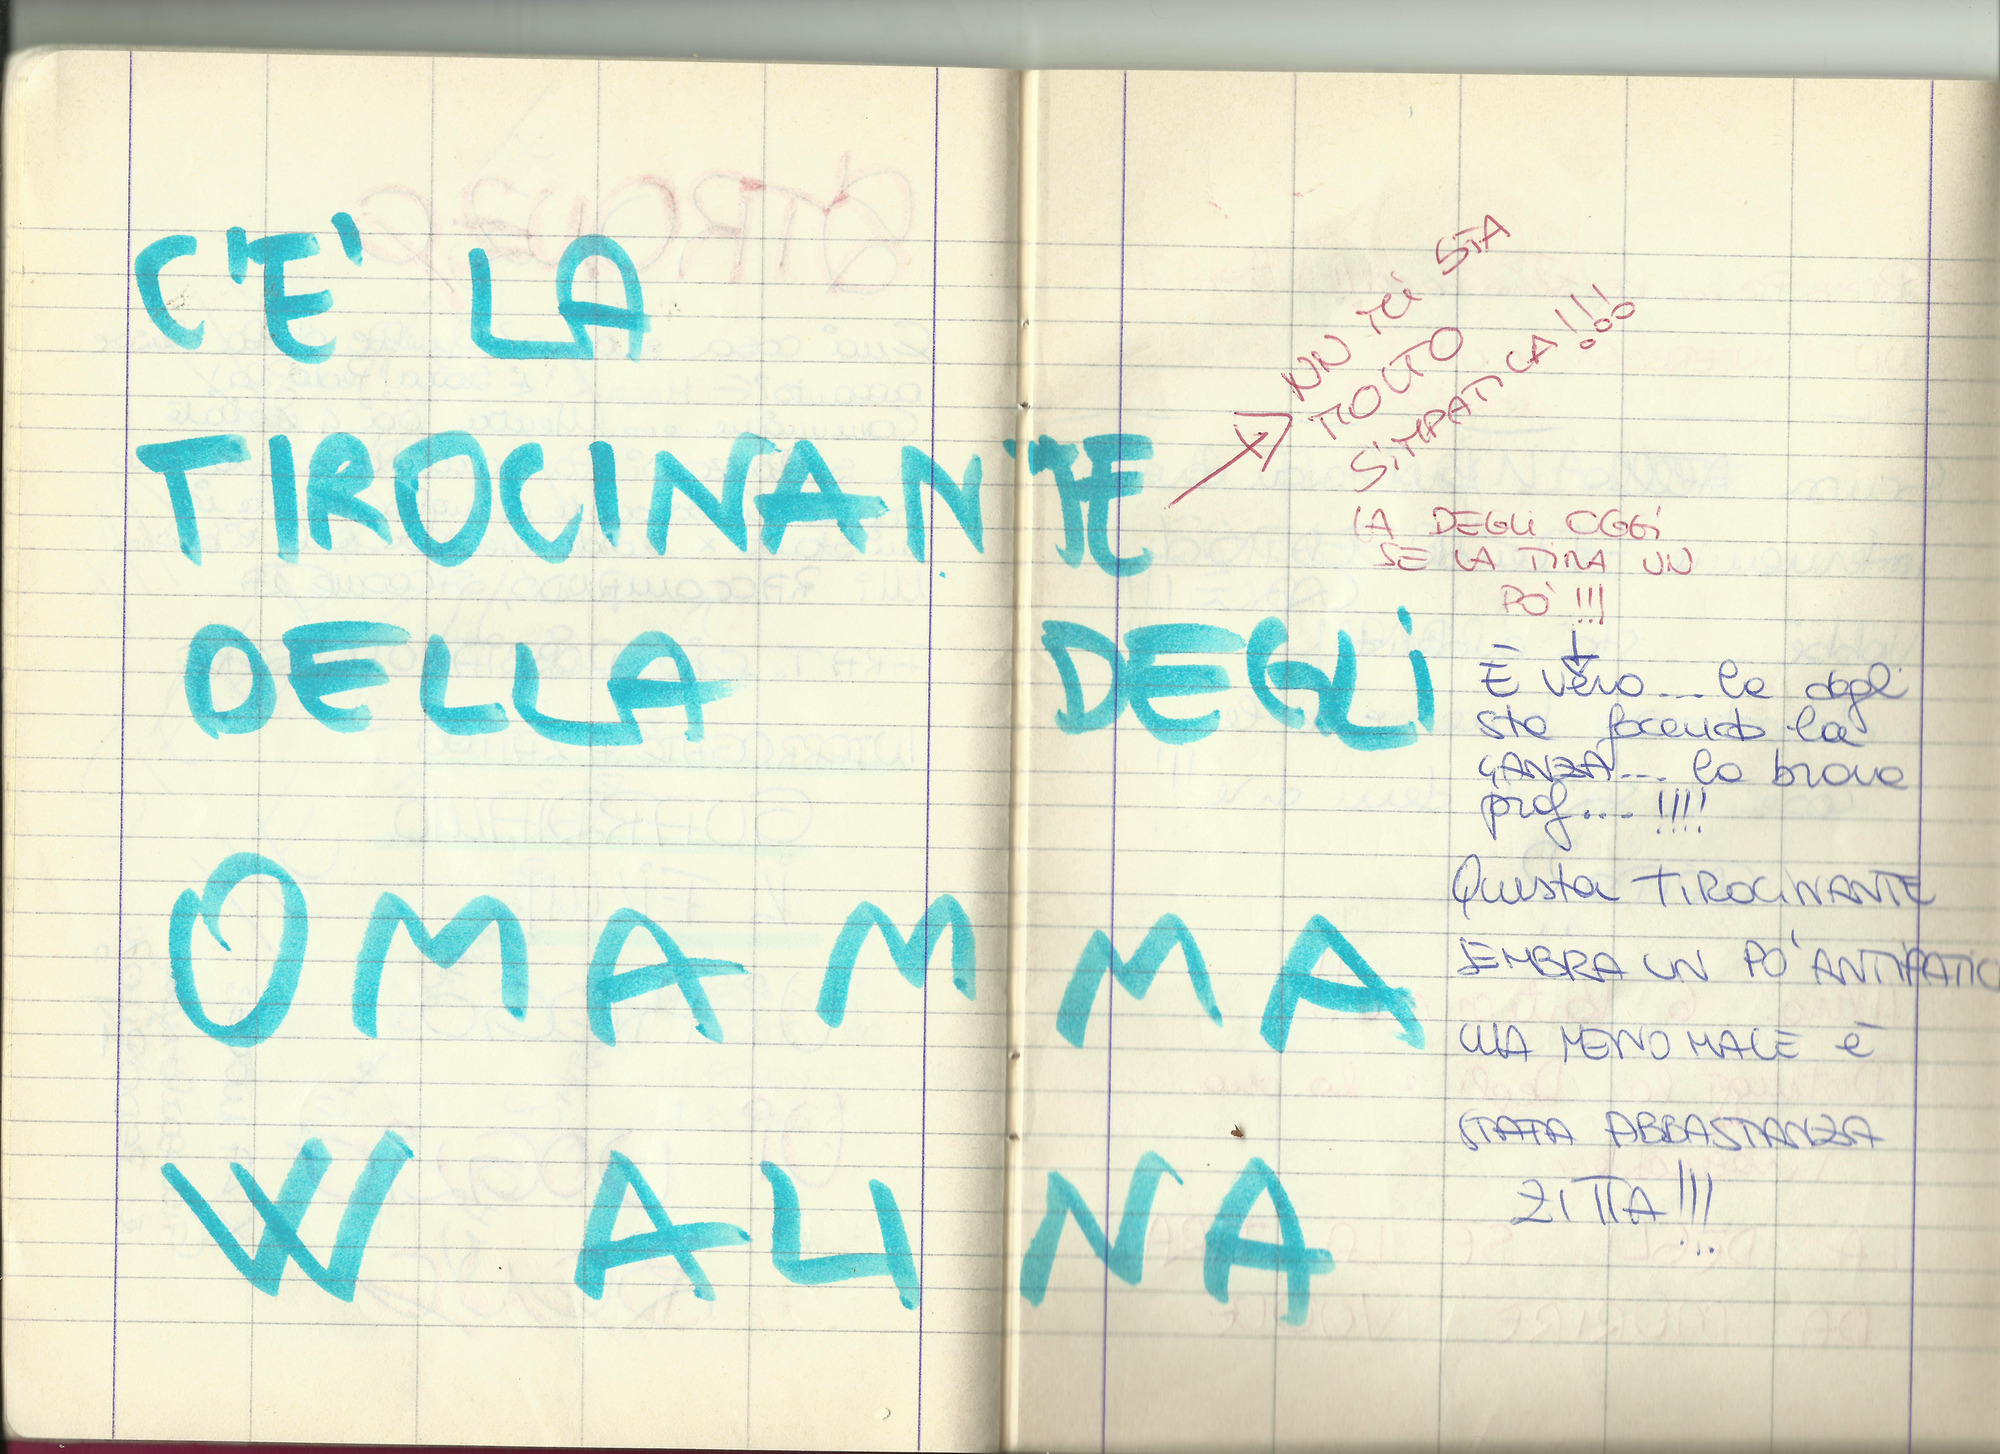 C'E' LA
TIROCINANTE
DELLA DEGLI
OMAMMA
W ALINA
NN MI STA
MOLTO
SIMPATICA!!!
LA DEGLI OGGI
SE LA TIRA UN
PÒ!!!
È vero... la degli
sta facendo la
GANZA... la brava
prof... !!!!
Questa TIROCINANTE
SEMBRA UN PO' ANTIPATIC
MA MENO MALE è
STATA ABBASTANZA
ZITTA!!!